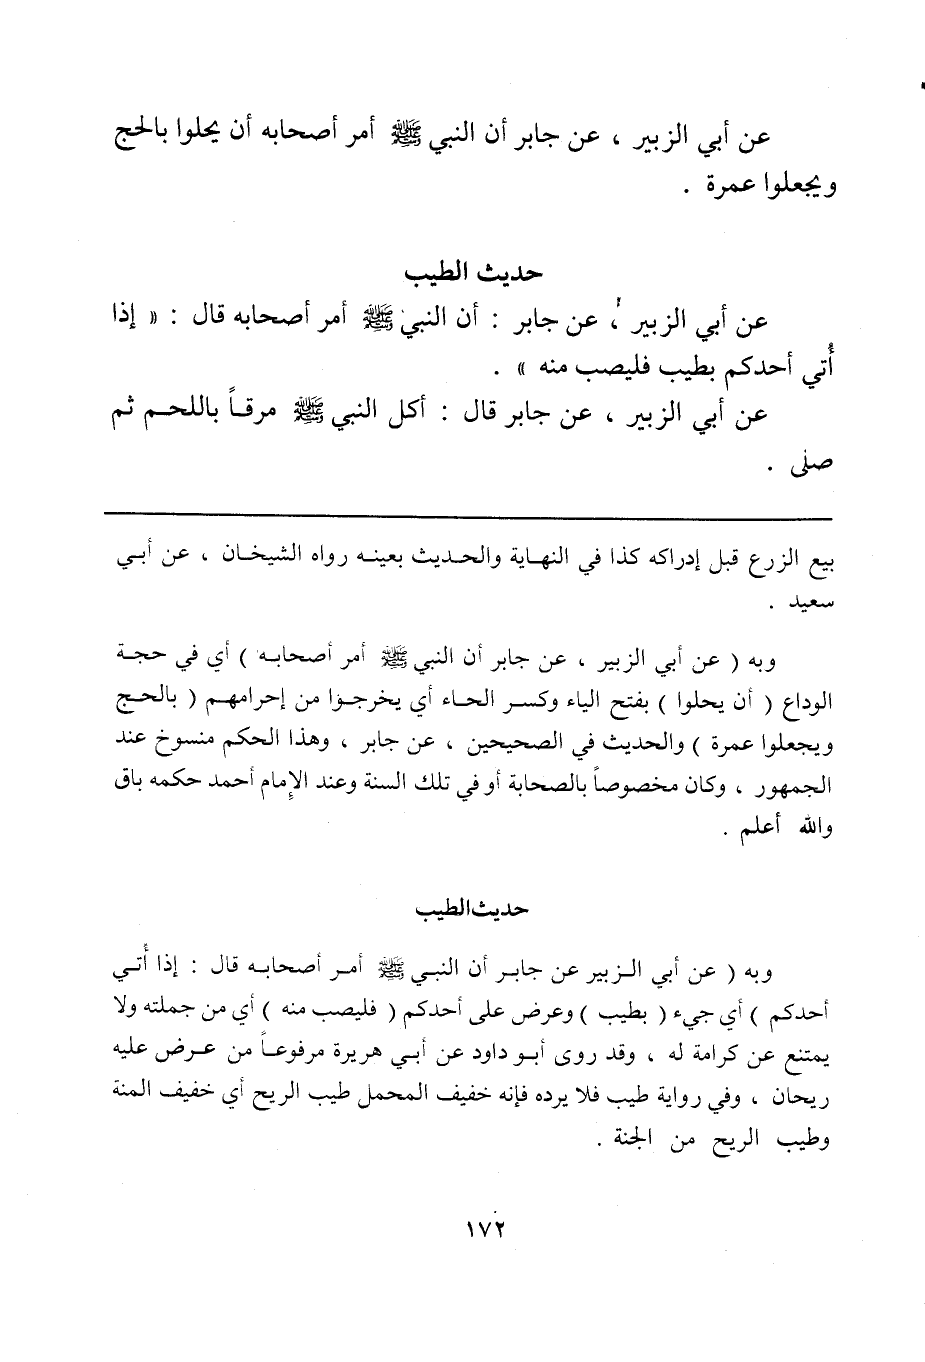 عن أبي الزبير ، عن جابر أن النبي ﷺ أمر أصحابه أن يحلوا بالحج
ويجعلوا عمرة .
حديث الطيب
عن أبي الزبير ، عن جابر : أن النبي ﷺ أمر أصحابه قال : « إذا
أُتي أحدكم بطيب فليصب منه » .
عن أبي الزبير ، عن جابر قال : أكل النبي ﷺ مرقاً باللحم ثم
صلى .
بيع الزرع قبل إدراكه كذا في النهاية والحديث بعينه رواه الشيخان ، عن أبي
سعيد .
وبه ( عن أبي الزبير ، عن جابر أن النبي ﷺ أمر أصحابه ) أي في حجة
الوداع ( أن يحلوا ) بفتح الياء وكسر الحاء أي يخرجوا من إحرامهم ( بالحج
ويجعلوا عمرة ) والحديث في الصحيحين ، عن جابر ، وهذا الحكم منسوخ عند
الجمهور ، وكان مخصوصاً بالصحابة أو في تلك السنة وعند الإمام أحمد حكمه باق
والله أعلم .
حديث الطيب
وبه ( عن أبي الزبير عن جابر أن النبي ﷺ أمر أصحابه قال : إذا أُتي
أحدكم ) أي جيء ( بطيب ) وعرض على أحدكم ( فليصب منه ) أي من جملته ولا
يمتنع عن كرامة له ، وقد روى أبو داود عن أبي هريرة مرفوعاً من عرض عليه
ريحان ، وفي رواية طيب فلا يرده فإنه خفيف المحمل طيب الريح أي خفيف المنة
وطيب الريح من الجنة .
١٧٢